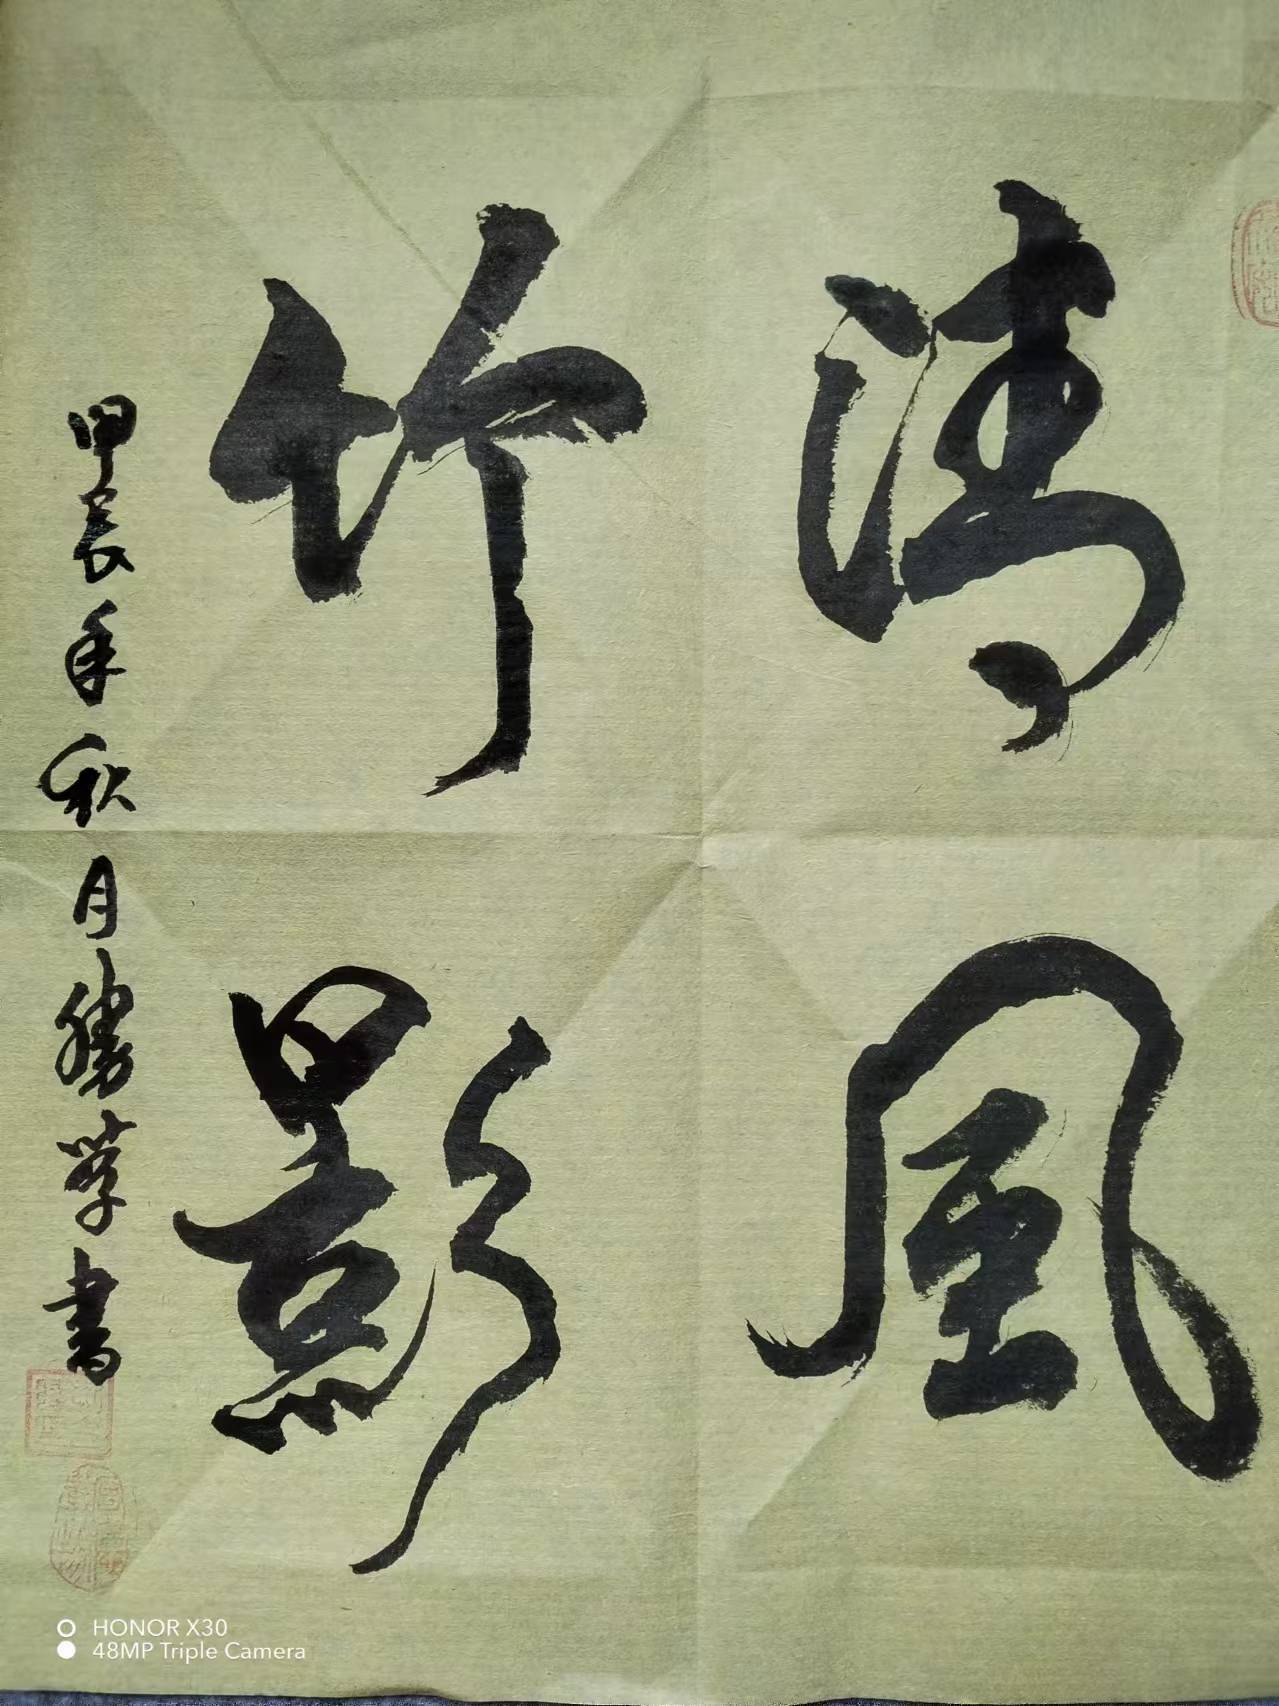 清風
竹影
甲辰年秋月勝学書
HONOR X30
48MP Triple Camera